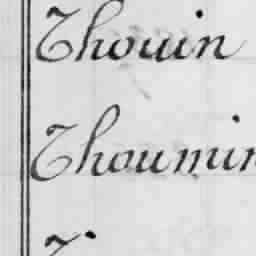 Thouin
Thoumin